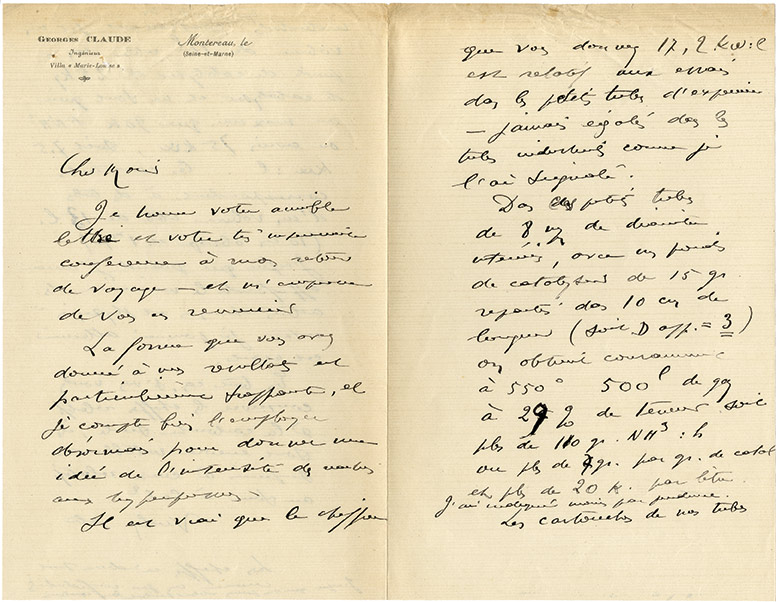 GEORGES CLAUDE
Ingénieur
Villa « Marie-Louise »
Montereau, le
(SEINE-ET-MARNE)
Cher
Je trouve votre aimable
lettre et votre très intéressante
conférence à mon retour
de voyage — et m'empresse
de vous en remercier
La forme que vous avez
donnée à vos résultats est
particulièrement frappante, et
je compte bien l'employer
désormais pour donner une
idée de l'intensité des
aux
Il est vrai que le chiffre
que vous donnez 17,2 kw
est relatif aux essais
dans les petits tubes d'expérience
— jamais égalés dans les
tubes industriels comme je
l'ai signalé.
Dans des petits tubes
de 8 de diamètre
intérieur, avec un poids
de catalyseur de 15 gr.
répartis dans 10 cm de
longueur (soit D app. = 3)
on obtient couramment
à 550° 500 l de gaz
à 29 % de teneur soit
plus de 110 gr. NH³ : h
ou plus de 7 gr. par gr. de catal
et plus de 20 K. par litre.
J'ai indiqué moins par prudence.
Les cartouches de nos tubes